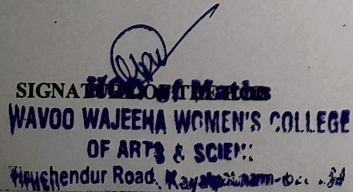 SIGNATURE OF THE HOD
HOD of Maths
WAVOO WAJEEHA WOMEN'S COLLEGE
OF ARTS & SCIENC
Tiruchendur Road, Kayalpatnam-